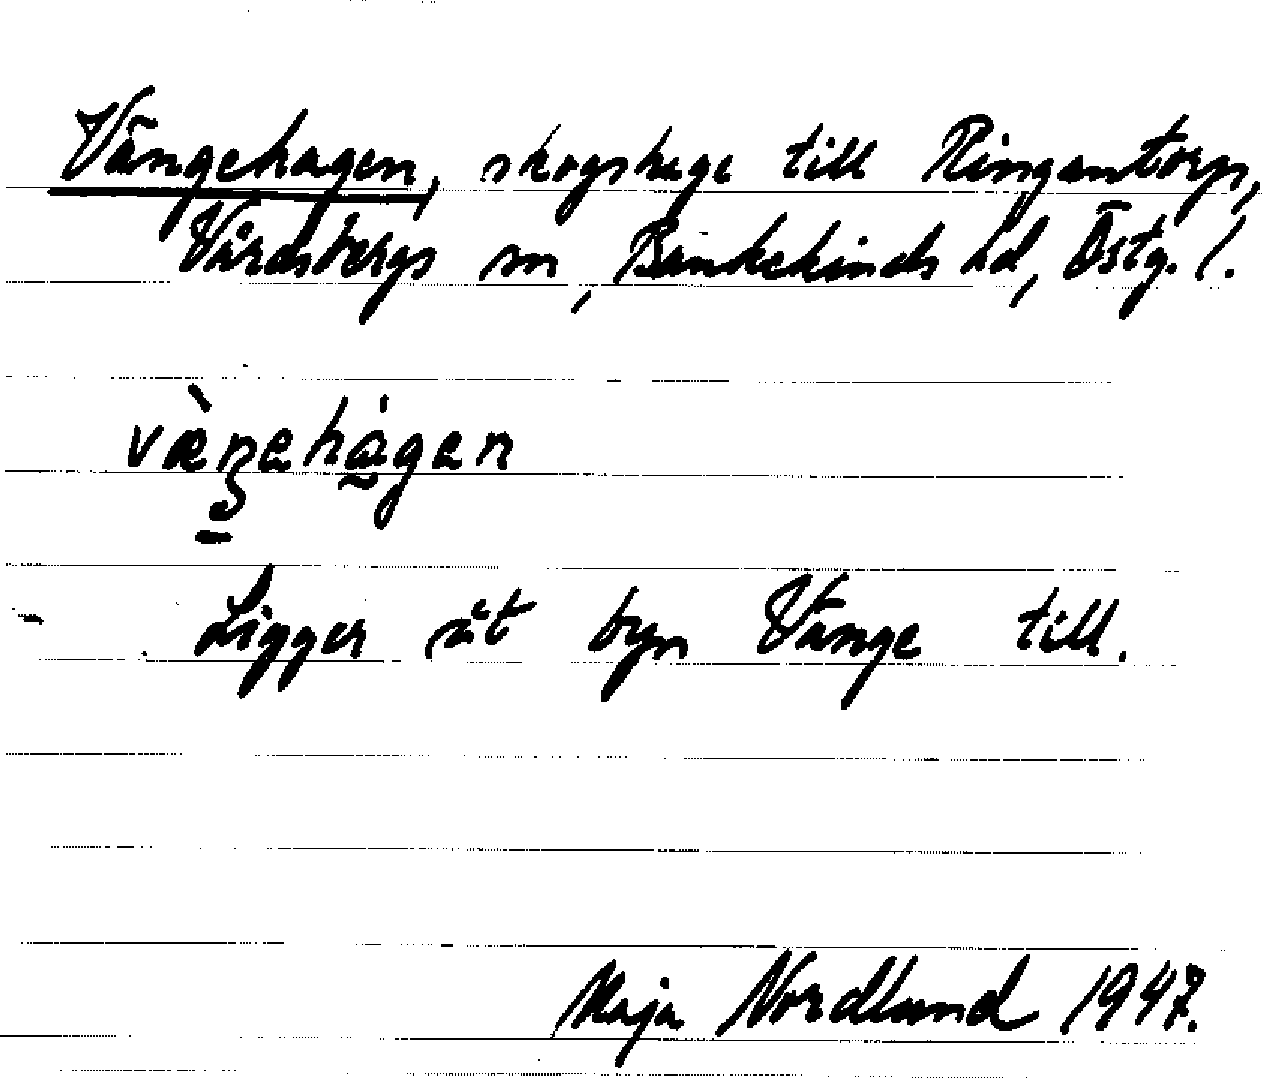 Vängehagen, skogshage till Ringantorp,
Vårdsbergs sn, Bankekinds hd, Östg. l.
væ̀ŋehågen
Ligger åt byn Vänge till.
Maja Nordlund 1947.